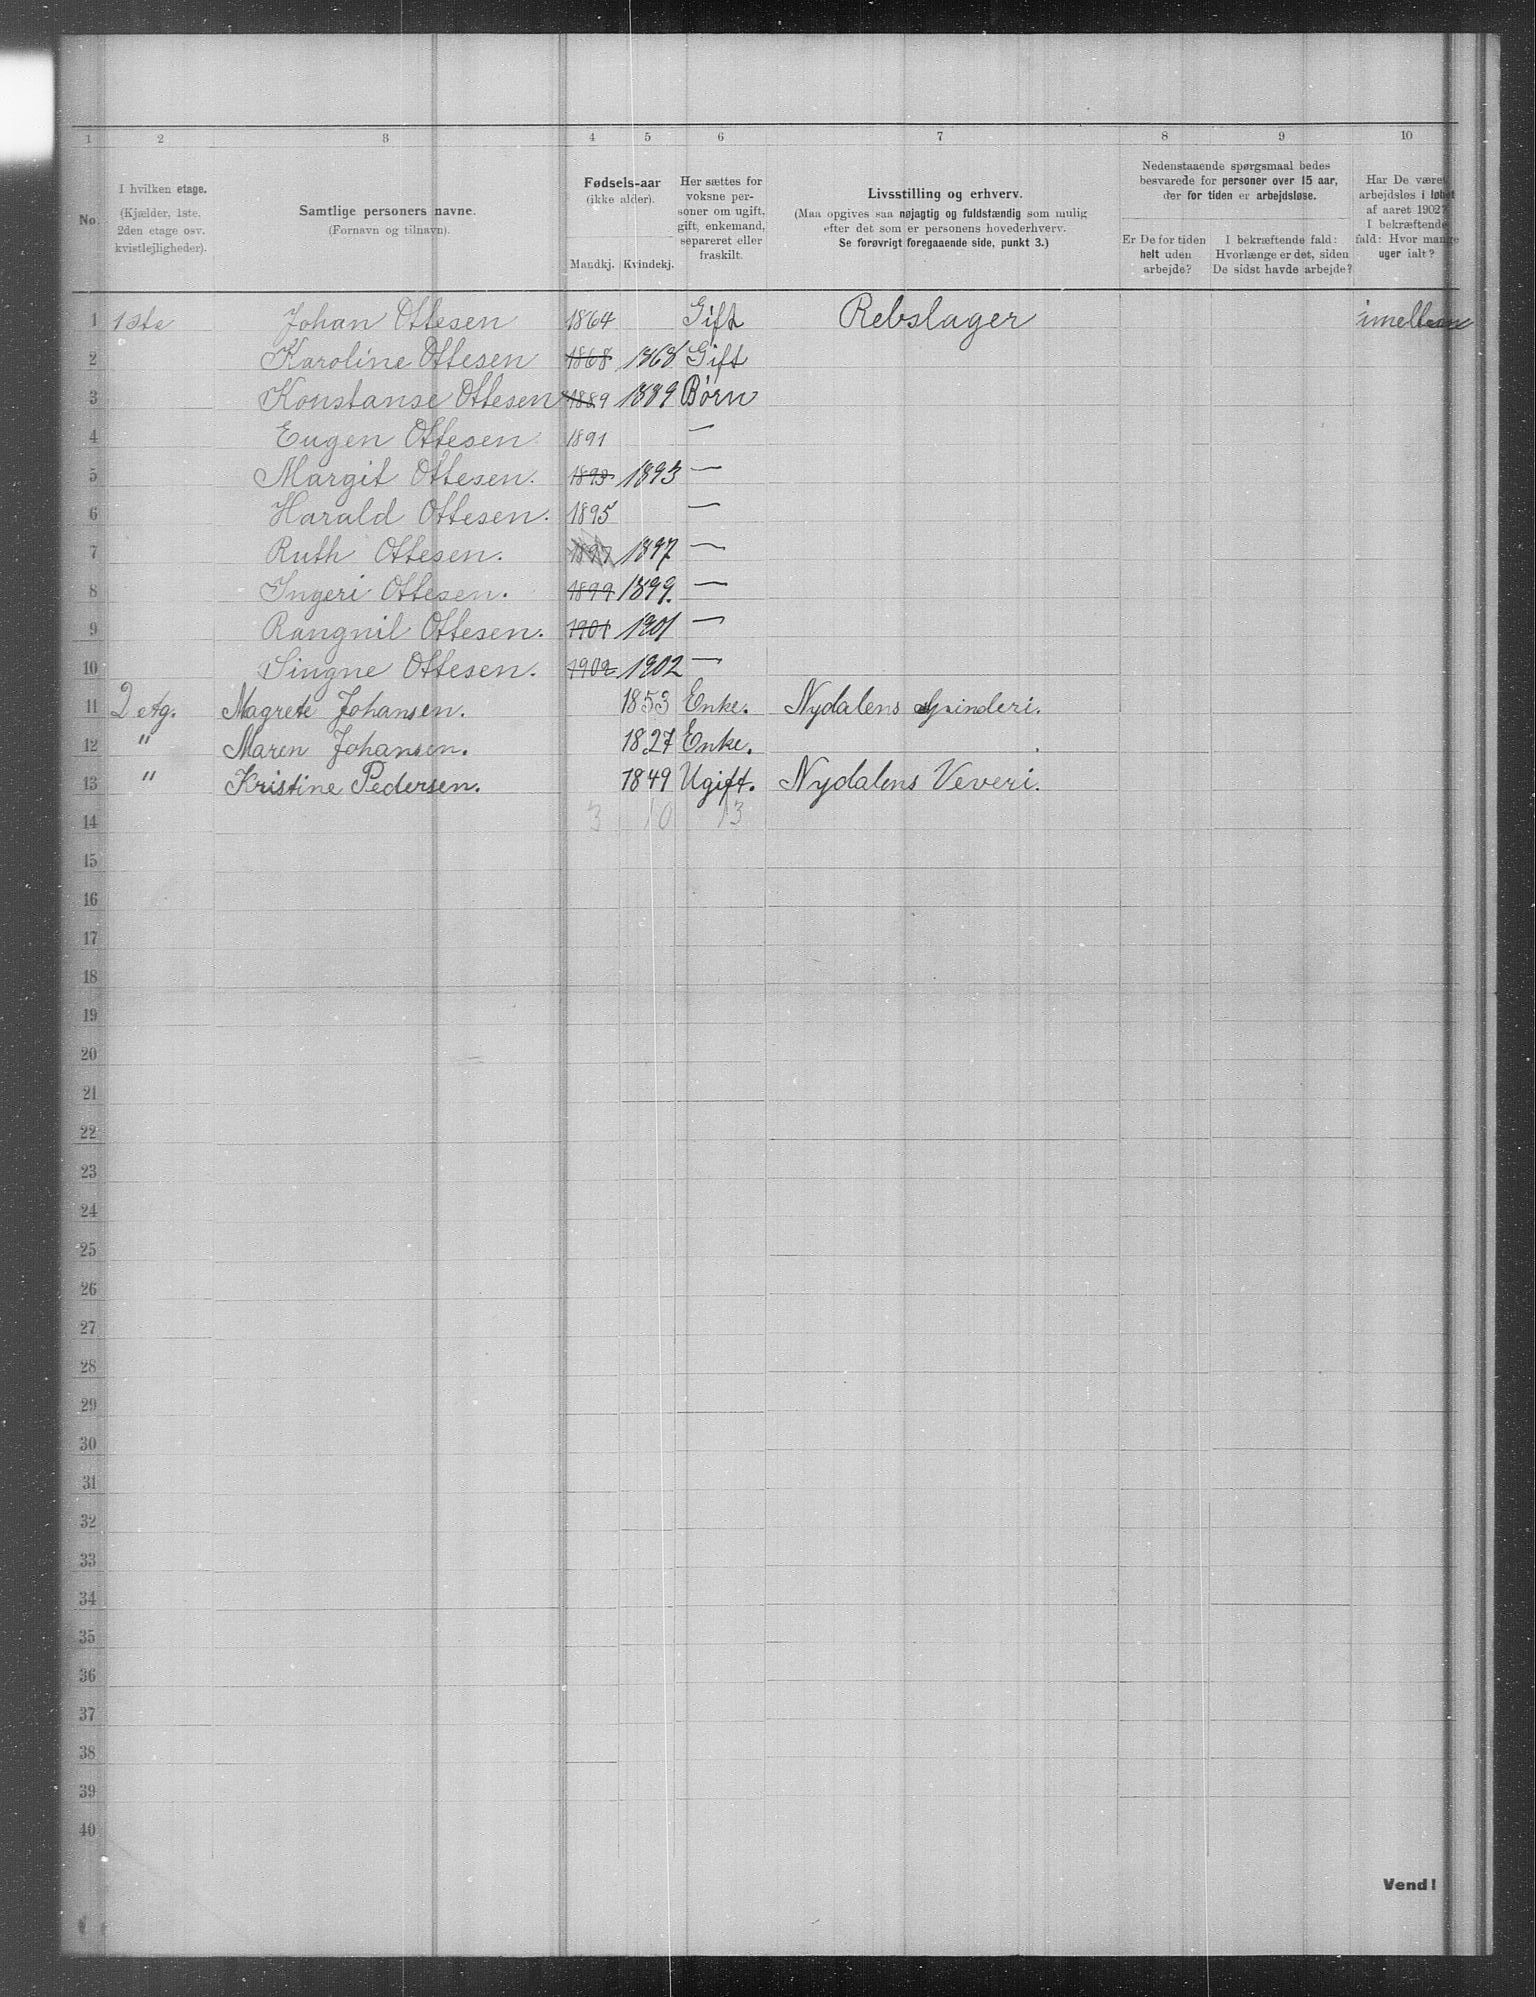 1 2 3 4 5 6 7 8 9 10
No.
I hvilken etage.
(Kjælder, 1ste.
2den etage osv.
kvistlejligheder).
Samtlige personers navne.
(Fornavn og tilnavn).
Fødsels-aar
(ikke alder).
Mandkj. Kvindekj.
Her sættes for
voksne per-
soner om ugift,
gift, enkemand,
separeret eller
fraskilt.
Livsstilling og erhverv.
(Maa opgives saa nøjagtig og fuldstændig som mulig
efter det som er personens hovederhverv.
Se forøvrigt foregaaende side, punkt 3.)
Nedenstaaende spørgsmaal bedes
besvarede for personer over 15 aar,
der for tiden er arbejdsløse.
Er De for tiden
helt uden
arbejde?
I bekræftende fald:
Hvorlænge er det, siden
De sidst havde arbejde?
Har De været
arbejdsløs i løbet
af aaret 1902?
I bekræftende
fald: Hvor mange
uger ialt?
1 1ste Johan Ottesen 1864 Gift Rebslager imellem
2 Karoline Ottesen 1868 1868 Gift
3 Konstanse Ottesen 1889 1889 Børn
4 Eugen Ottesen 1891 —
5 Margit Ottesen. 1893 1893 —
6 Harald Ottesen. 1895 —
7 Ruth Ottesen. 1897 1897 —
8 Ingeri Ottesen. 1899 1899. —
9 Rangnil Ottesen. 1901 1901 —
10 Singne Ottesen. 1902 1902 —
11 2 etg. Magrete Johansen. 1853 Enke. Nydalens Spinderi.
12 " Maren Johansen. 1827 Enke.
13 " Kristine Pedersen. 1849 Ugift. Nydalens Veveri.
14 3 10 13
15
16
17
18
19
20
21
22
23
24
25
26
27
28
29
30
31
32
33
34
35
36
37
38
39
40
Vend!